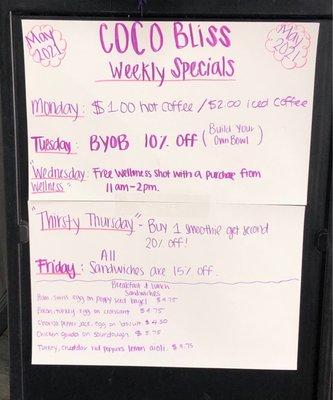 May 2021
COCO Bliss
May 2021
Weekly Specials
Monday: $1.00 hot coffee / $2.00 iced coffee
Tuesday: BYOB 10% off (Build Your Own Bowl)
"Wednesday: Free wellness shot with a purchase from
Wellness" 11am-2pm.
"Thirsty Thursday" - Buy 1 smoothie get second
20% off!
Friday: All Sandwiches are 15% off.
Breakfast & lunch
Sandwiches
swiss egg on poppy seed bagel $4.75
Bacon, turkey, egg on croissant $4.75
pepper jack, egg on biscuit $4.50
Chicken on sourdough $5.75
Turkey, cheddar, red peppers lemon aioli $